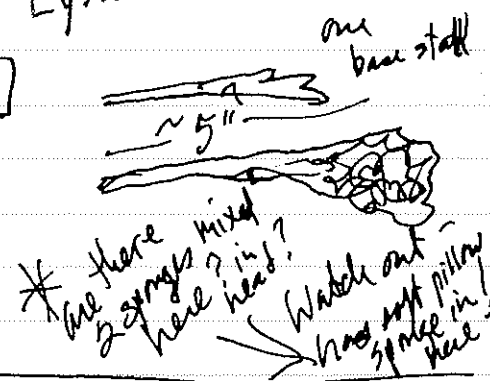 Lys
one
base stalk
~ 5"
* are there
2 sponges mixed
here? in
head?
Watch out -
has soft pillow
sponge in
here!